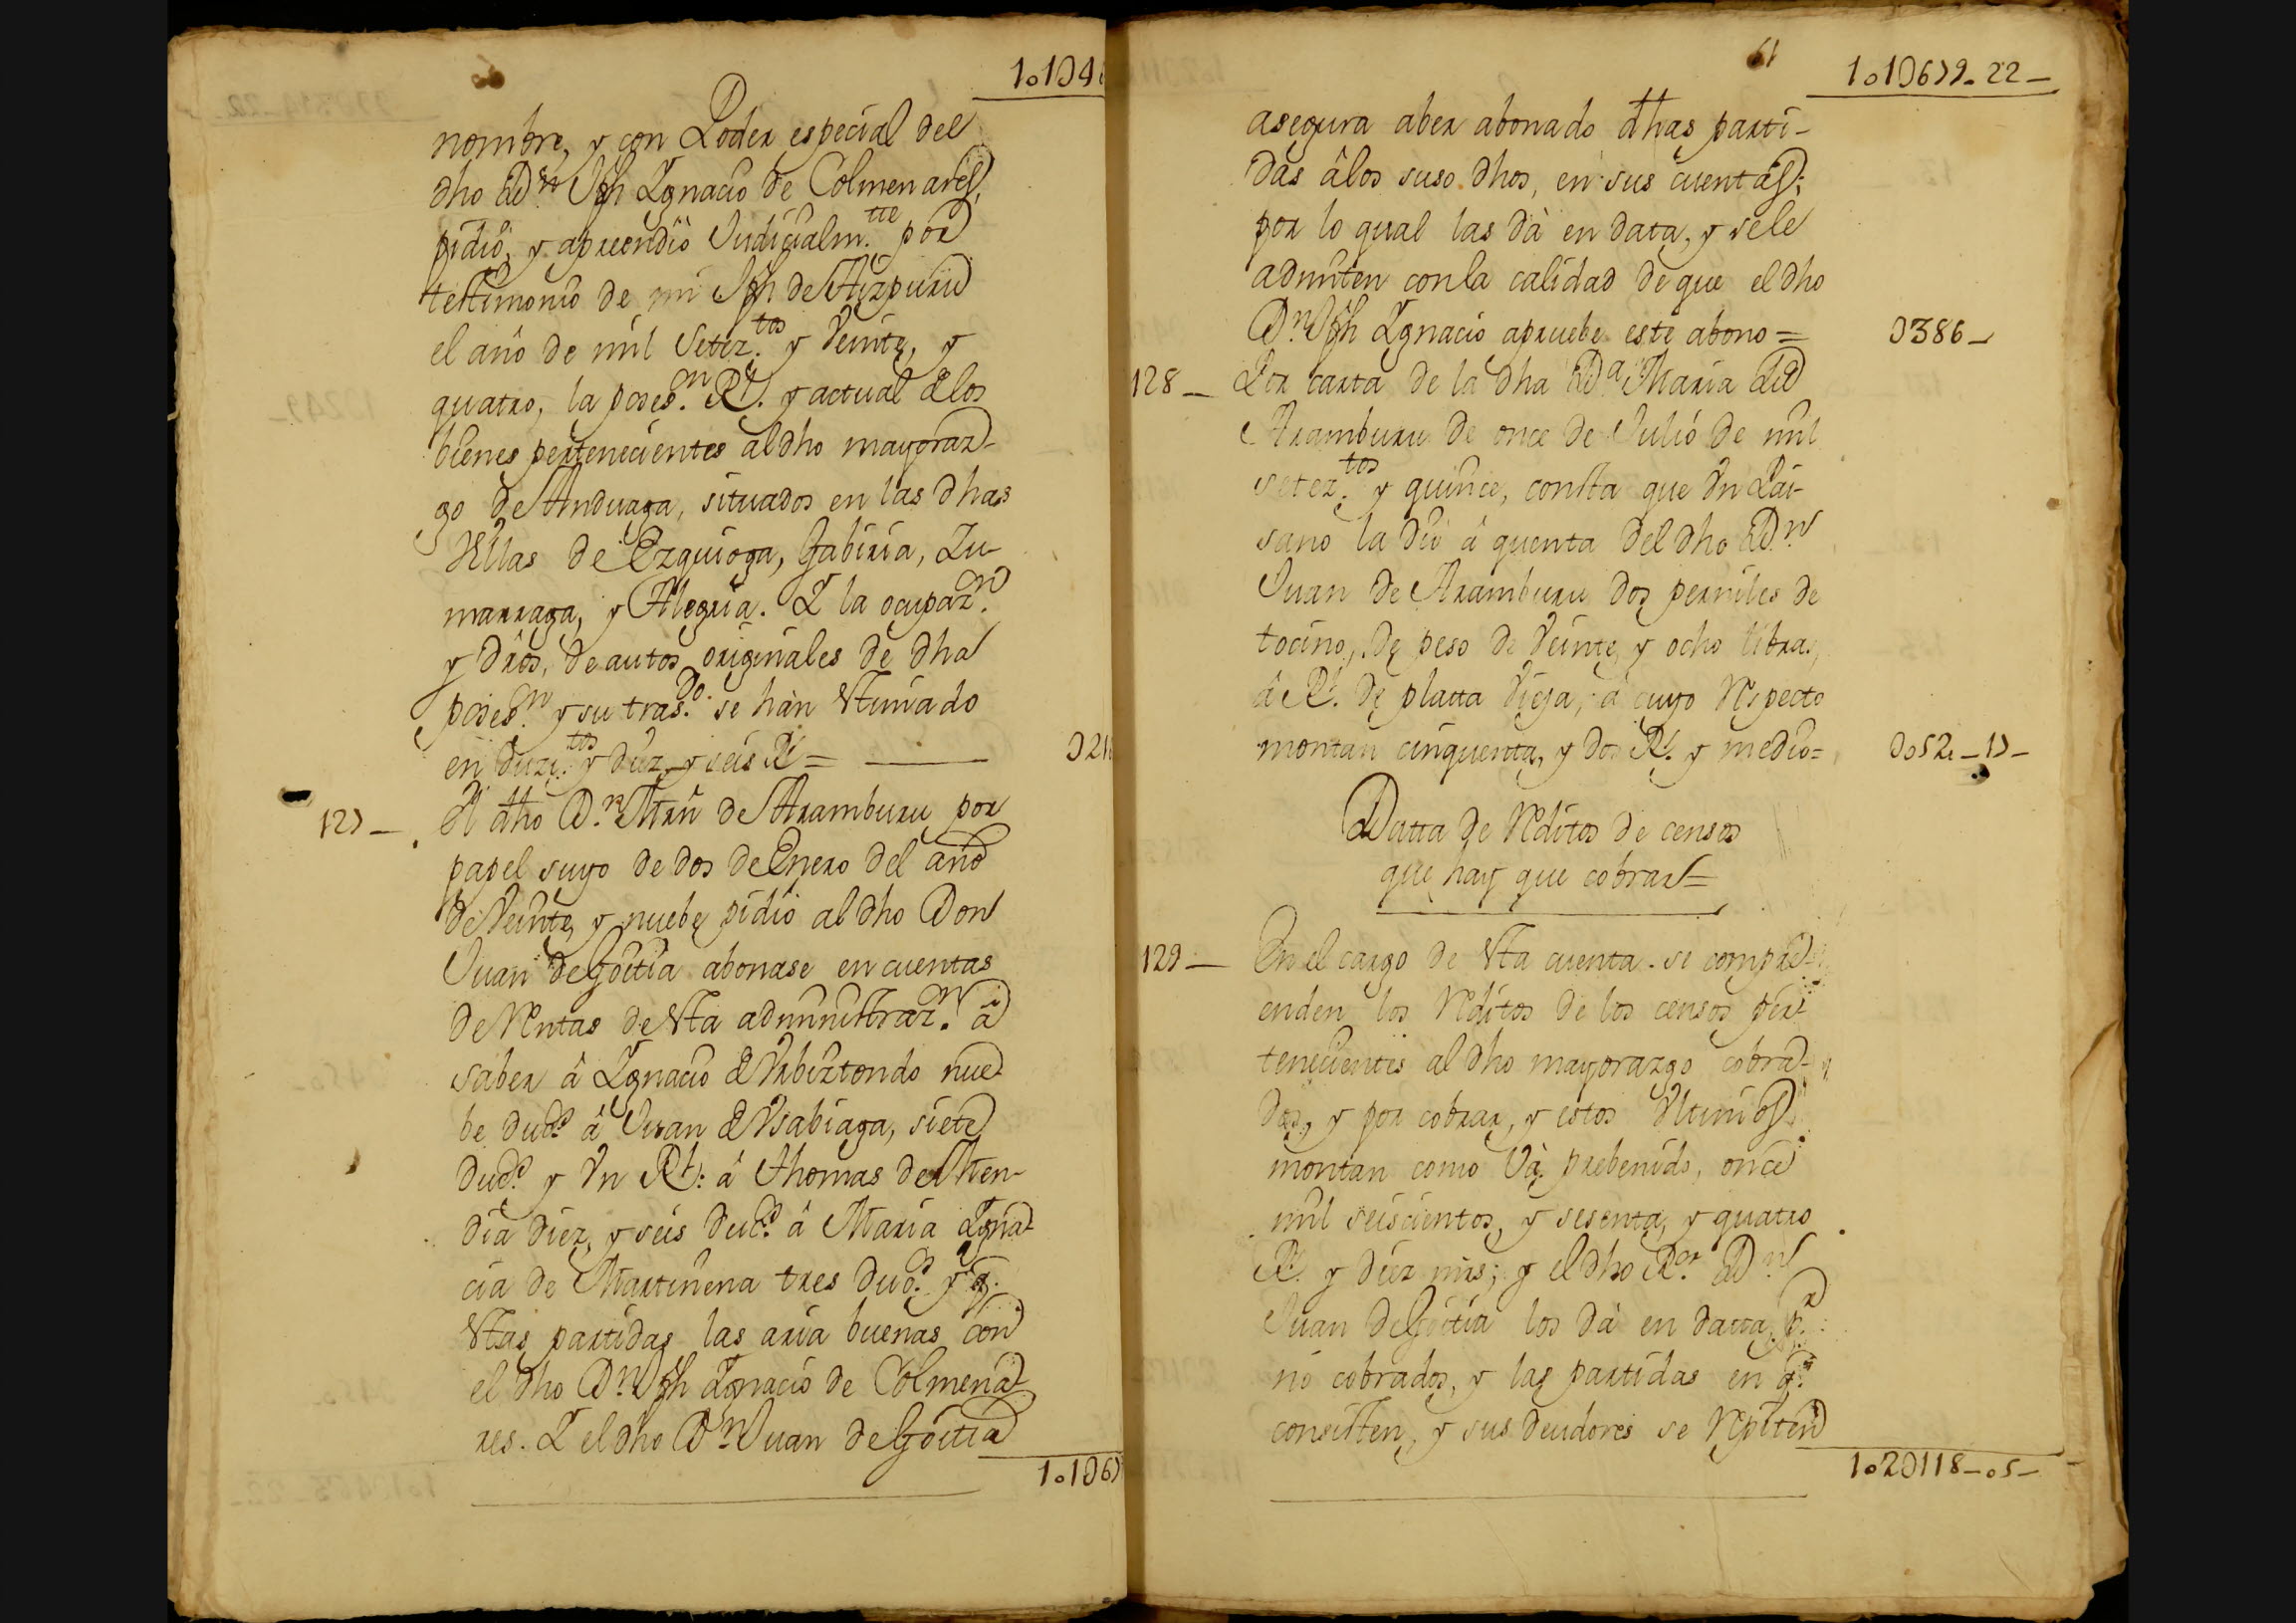 60
1.1046
nombre, y con Poder especial del
dho D.n Jph Ygnacio de Colmenares,
pidió, y apreendió Judicialm.tte por
testimonio de mi Jph de Aizpuru
el año de mil Setez.tos y Veinte, y
quatro, la poses.on Rl. y actual de los
bienes pertenecientes al dho mayoraz-
go de Anduaga, situados en las dhas
Villas de Ezquioga, Gabiria, Zu-
marraga, y Alegria. Y la ocupaz.on
y dros, de autos originales de dha
poses.on y su tras.do se hàn Estimado
en duzi.tos y diez, y seis Rs =
127 — Al dho D.n Mrñ de Aramburu por
papel suyo de dos de Enero del año
de Veinte, y nuebe pidió al dho Don
Juan de Goitia abonase en cuentas
de Rentas de Esta administraz.on â
saber â Ygnacio de Urbiztondo nue-
be duc.s â Juan de Ysabiaga, siete
duc.s y Vn Rl: â Thomas de Men-
dia diez, y seis duc.s â Maria Ygna-
cia de Martinena tres duc.s y q.e
Estas partidas las aria buenas con
el dho D.n Jph Ygnacio de Colmena-
res. Y el dho D.n Juan de Goitia
1.1067
61
1.10679-22-
asegura aber abonado dhas parti-
das âlos suso dhos, en sus cuentas;
por lo qual las dà en data, y sele
admiten con la calidad de que el dho
D.n Jph Ygnacio apruebe este abono = 0386-
128 — Por carta de la dha D.a Maria de
Aramburu de once de Julio de mil
setez.tos y quince, consta que Vn Pai-
sano la dió â quenta del dho D.n
Juan de Aramburu dos perniles de
tocino, de peso de Veinte, y ocho libras,
â Rl. de platta Vieja, â cuyo Respecto
montan cinquenta, y dos Rs. y medio= 0052-17-
Datta de Reditos de censos
que hay que cobrar=
129 — En el cargo de Esta cuenta se compre-
enden los Reditos de los censos per-
tenecientes al dho mayorazgo cobra-
dos, y por cobrar, y estos Vltimos
montan como Và prebenido, once
mil seiscientos, y sesenta, y quatro
Rs. y diez mrs; y el dho R.or D.n
Juan de Goitia los dà en datta, p.r
no cobrados, y las partidas en q.e
consisten, y sus deudores se Repiten
1.20118-.5-